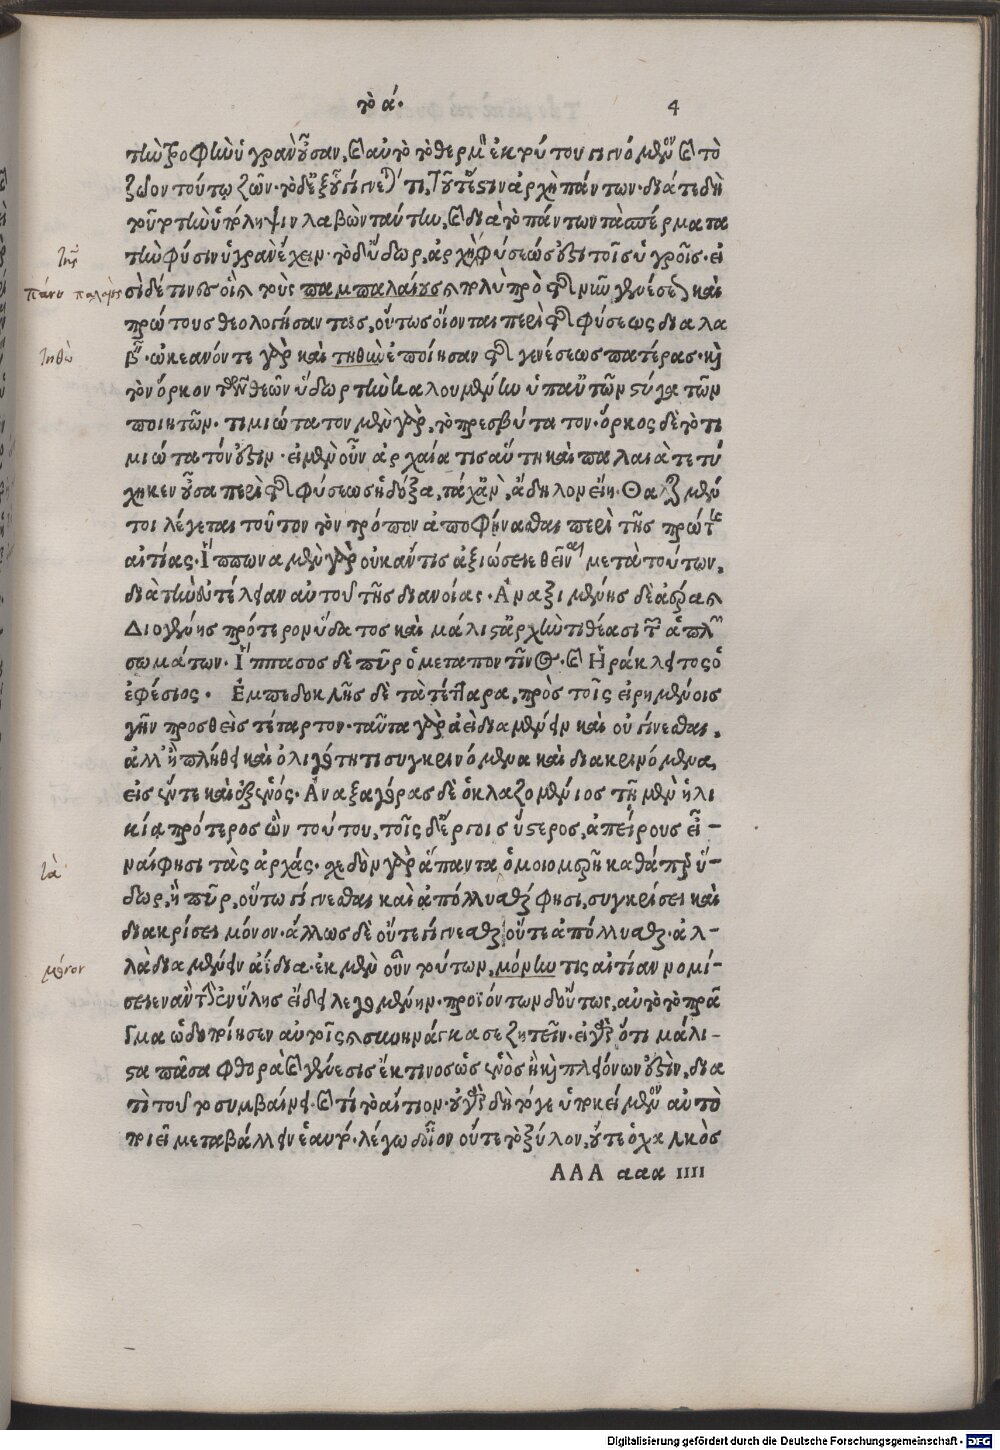 τὸ ά.
4
τὴν τροφὴν ὑγρὰν οὖσαν, καὶ αὐτὸ τὸ θερμὸν ἐκ τούτου γινόμενον, καὶ τὸ
ζῶον τούτῳ ζῶν. τὸ δ' ἐξ οὗ γίγνεταί τι, τοῦτ' ἐστὶν ἀρχὴ πάντων. διά τε δὴ
τοῦτο τὴν ὑπόληψιν λαβὼν ταύτην, καὶ διὰ τὸ πάντων τὰ σπέρματα
τὴν φύσιν ὑγρὰν ἔχειν. τὸ δ' ὕδωρ, ἀρχὴ φύσεώς ἐστι τοῖς ὑγροῖς. εἰ
τῆς
σὶ δέ τινες οἳ καὶ τοὺς παμπαλαίους καὶ πολὺ πρὸ τῆς νῦν γενέσεως καὶ
πάνυ παλαιοὺς
πρώτους θεολογήσαντας, οὕτως οἴονται περὶ τῆς φύσεως διαλα
βεῖν. ὠκεανόν τε γὰρ καὶ τηθὺν ἐποίησαν τῆς γενέσεως πατέρας. καὶ
τηθὺ
τὸν ὅρκον τῶν θεῶν ὕδωρ τὴν καλουμένην ὑπ' αὐτῶν στύγα τῶν
ποιητῶν. τιμιώτατον μὲν γὰρ, τὸ πρεσβύτατον. ὅρκος δὲ τὸ τι
μιώτατόν ἐστιν. εἰ μὲν οὖν ἀρχαία τις αὕτη καὶ παλαιὰ τετύ
χηκεν οὖσα περὶ τῆς φύσεως ἡ δόξα, τάχ' ἂν, ἄδηλον εἴη. Θαλῆς μέν
τοι λέγεται τοῦτον τὸν τρόπον ἀποφήνασθαι περὶ τῆς πρώτης
αἰτίας. Ἵππωνα μὲν γὰρ οὐκ ἄν τις ἀξιώσειε θεῖναι μετὰ τούτων,
διὰ τὴν εὐτέλειαν αὐτοῦ τῆς διανοίας. Ἀναξιμένης δὲ ἀέρα καὶ
Διογένης πρότερον ὕδατος καὶ μάλιστ' ἀρχὴν τιθέασι τῶν ἁπλῶν
σωμάτων. Ἵππασος δὲ πῦρ ὁ μεταποντῖνος. καὶ Ἡράκλειτος ὁ
ἐφέσιος. Ἐμπεδοκλῆς δὲ τὰ τέτταρα, πρὸς τοῖς εἰρημένοις
γῆν προσθεὶς τέταρτον. ταῦτα γὰρ ἀεὶ διαμένειν καὶ οὐ γίνεσθαι,
ἀλλ' ἢ πλήθει καὶ ὀλιγότητι συγκρινόμενα καὶ διακρινόμενα,
εἰς ἕν τε καὶ ἐξ ἑνός. Ἀναξαγόρας δὲ ὁ κλαζομένιος τῇ μὲν ἡλι
κίᾳ πρότερος ὢν τούτου, τοῖς δ' ἔργοις ὕστερος, ἀπείρους εἶ-
ναί φησι τὰς ἀρχάς. σχεδὸν γὰρ ἅπαντα ὁμοιομερῆ καθάπερ ὕ-
τὰ
δωρ, ἢ πῦρ, οὕτω γίγνεσθαι καὶ ἀπόλλυσθαί φησι, συγκρίσει καὶ
διακρίσει μόνον. ἄλλως δὲ οὔτε γίγνεσθαι οὔτε ἀπόλλυσθαι. ἀλ-
λὰ διαμένειν ἀΐδια. ἐκ μὲν οὖν τούτων, μόνην τις αἰτίαν νομί-
μόνον
σειεν ἂν τὴν ἐν ὕλης εἴδει λεγομένην. προϊόντων δ' οὕτως, αὐτὸ τὸ πρᾶ
γμα ὡδοποίησεν αὐτοῖς καὶ συνηνάγκασε ζητεῖν. εἰ γὰρ ὅτι μάλι-
στα πᾶσα φθορὰ καὶ γένεσις ἔκ τινος ὡς ἑνὸς ἢ καὶ πλειόνων ἐστὶν, δια
τί τοῦτο συμβαίνει. καὶ τί τὸ αἴτιον. οὐ γὰρ δὴ τό γε ὑποκείμενον αὐτὸ
ποιεῖ μεταβάλλειν ἑαυτό. λέγω δ' οἷον οὔτε τὸ ξύλον, οὔτε ὁ χαλκὸς
ΑΑΑ ααα IIII
Digitalisierung gefördert durch die Deutsche Forschungsgemeinschaft - DFG